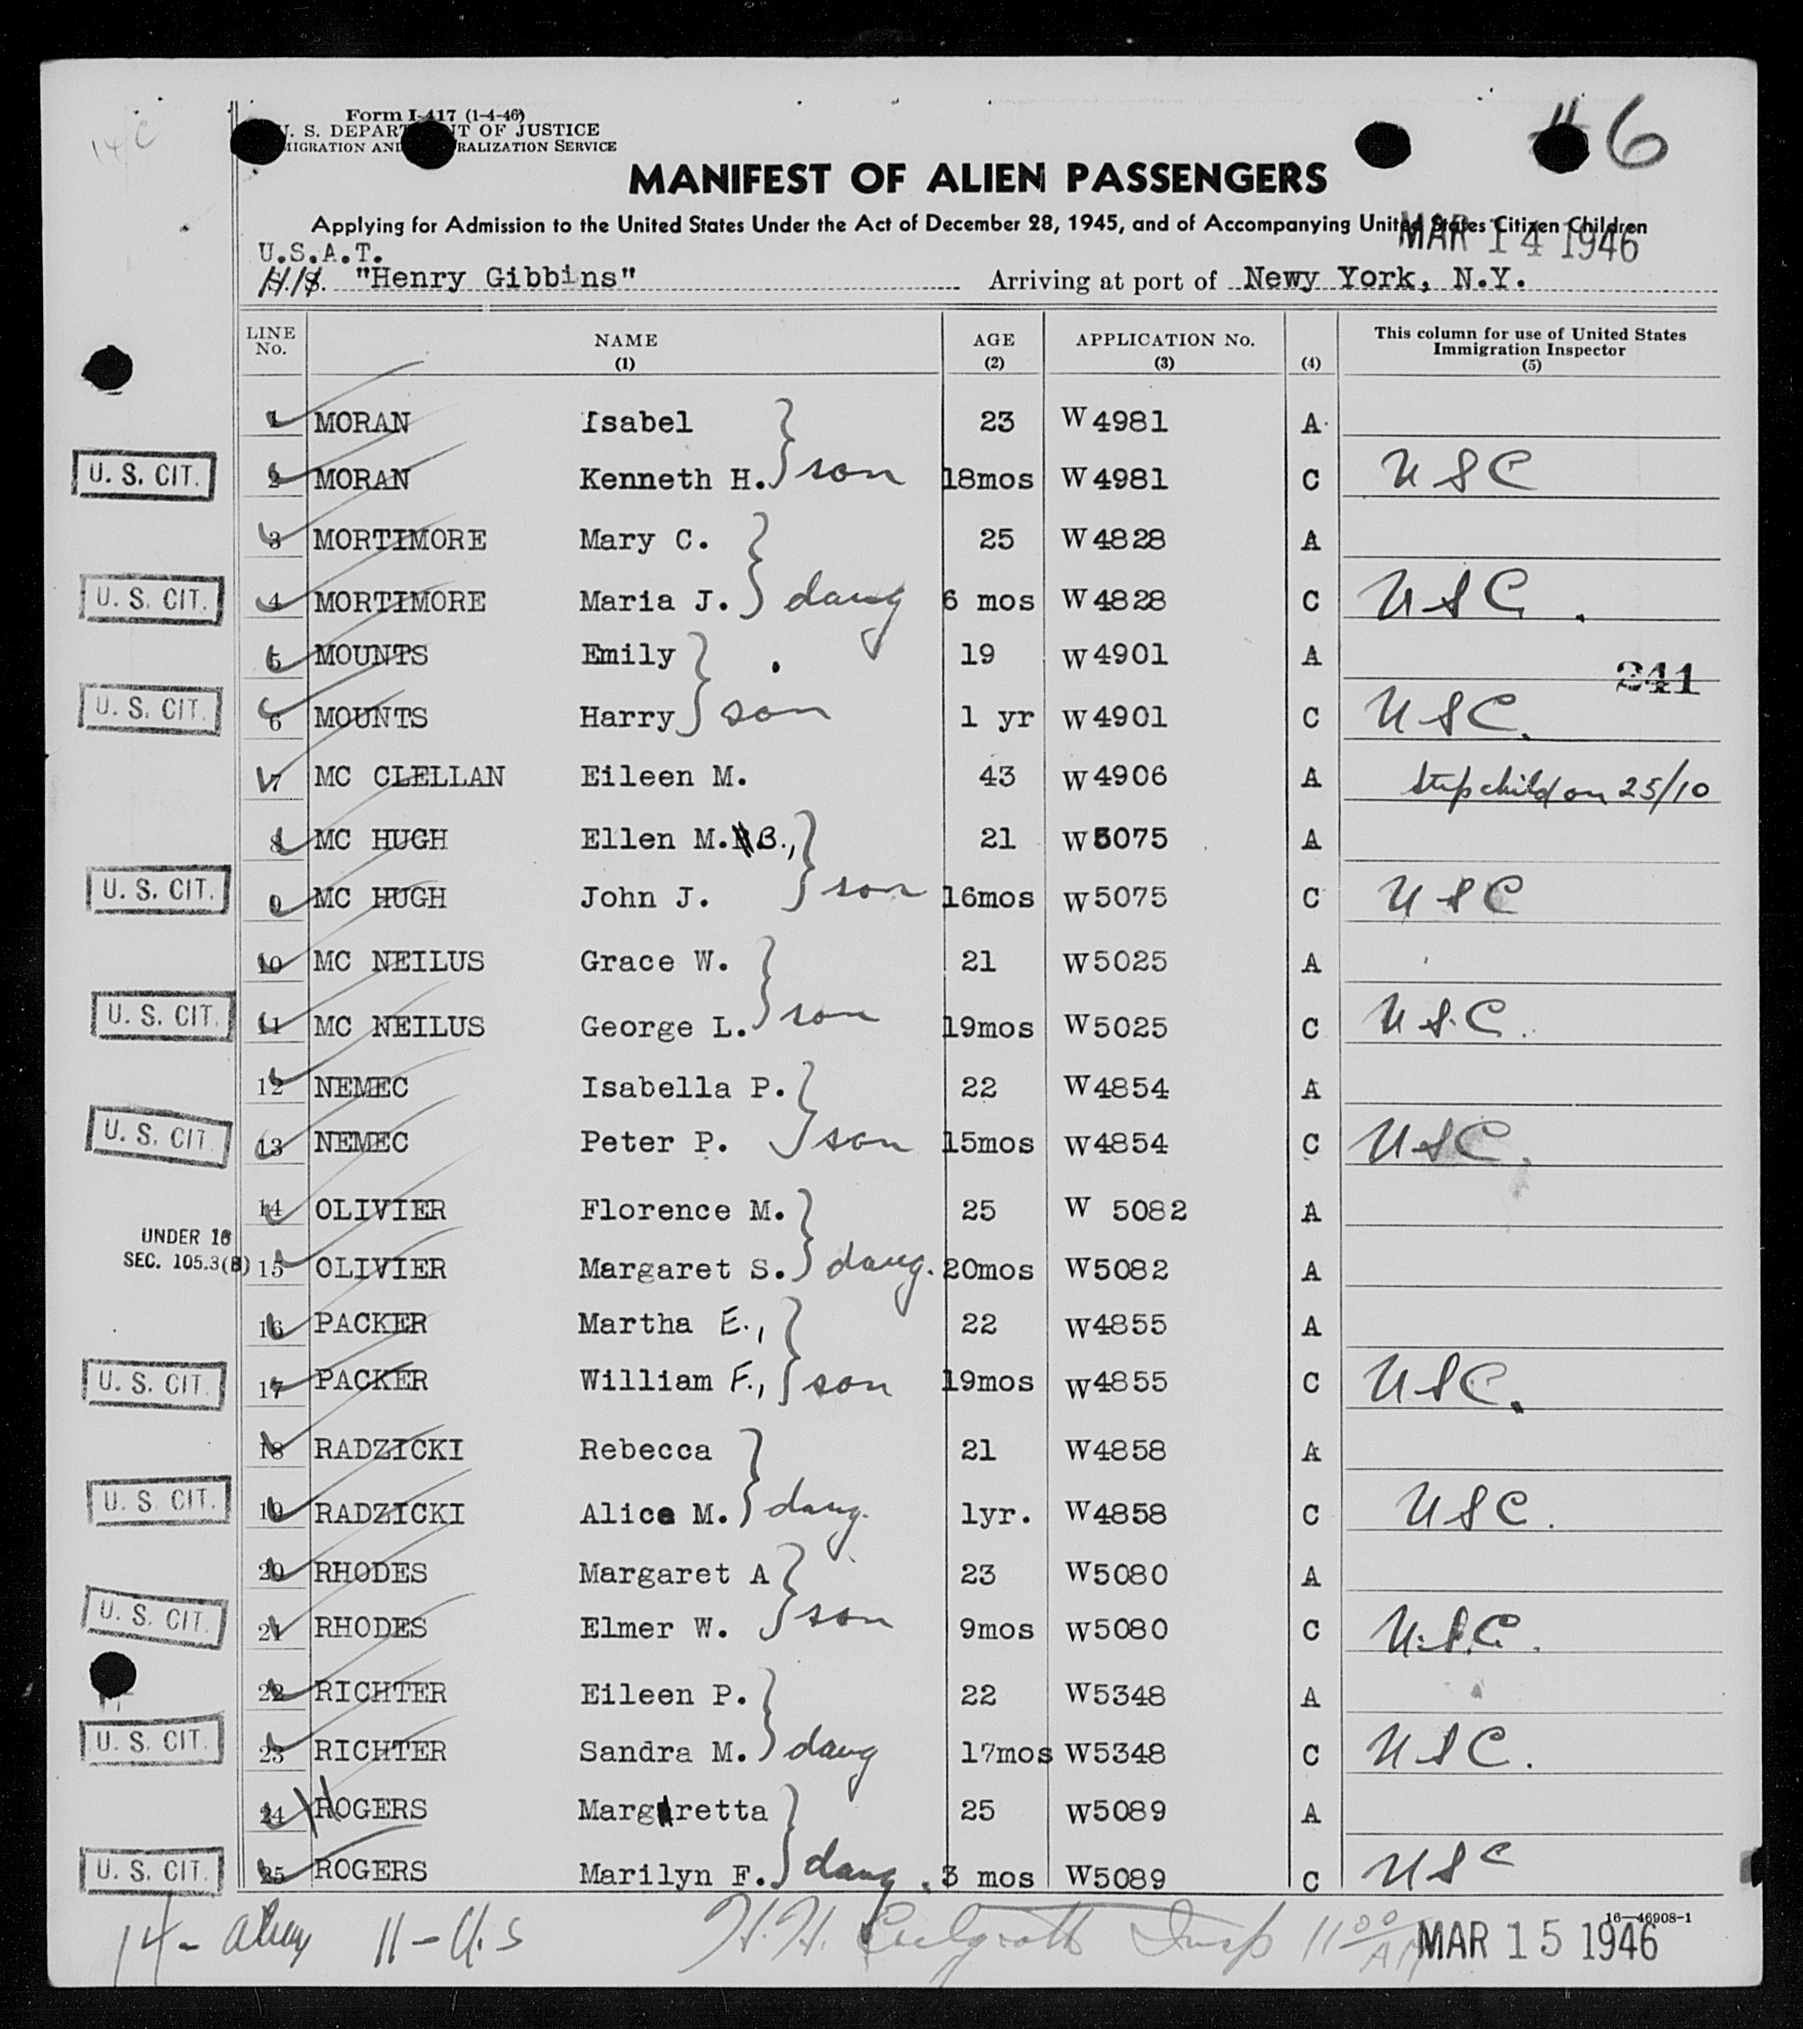 14 C
Form I-417 (1-4-46)
U. S. DEPARTMENT OF JUSTICE
IMMIGRATION AND NATURALIZATION SERVICE
# 6
MANIFEST OF ALIEN PASSENGERS
Applying for Admission to the United States Under the Act of December 28, 1945, and of Accompanying United States Citizen Children
MAR 14 1946
U.S.A.T.
"Henry Gibbins" Arriving at port of Newy York, N.Y.
LINE No. NAME (1) AGE (2) APPLICATION No. (3) (4) This column for use of United States Immigration Inspector (5)
1 MORAN Isabel 23 W 4981 A
U. S. CIT. 2 MORAN Kenneth H. son 18mos W 4981 C USC
3 MORTIMORE Mary C. 25 W 4828 A
U. S. CIT. 4 MORTIMORE Maria J. daug 6 mos W 4828 C USC.
5 MOUNTS Emily 19 W 4901 A
241
U. S. CIT. 6 MOUNTS Harry son 1 yr W 4901 C USC.
7 MC CLELLAN Eileen M. 43 W 4906 A Stepchild on 25/10
8 MC HUGH Ellen M. B., 21 W 5075 A
U. S. CIT. 9 MC HUGH John J. son 16mos W 5075 C USC
10 MC NEILUS Grace W. 21 W 5025 A
U. S. CIT. 11 MC NEILUS George L. son 19mos W 5025 C U.S.C.
12 NEMEC Isabella P. 22 W 4854 A
U. S. CIT. 13 NEMEC Peter P. son 15mos W 4854 C USC.
14 OLIVIER Florence M. 25 W 5082 A
UNDER 16
SEC. 105.3(B) 15 OLIVIER Margaret S. daug. 20mos W 5082 A
16 PACKER Martha E., 22 W 4855 A
U. S. CIT. 17 PACKER William F., son 19mos W 4855 C USC.
18 RADZICKI Rebecca 21 W 4858 A
U. S. CIT. 19 RADZICKI Alice M. daug. 1yr. W 4858 C USC.
20 RHODES Margaret A 23 W 5080 A
U. S. CIT. 21 RHODES Elmer W. son 9mos W 5080 C U.S.C.
22 RICHTER Eileen P. 22 W 5348 A
U. S. CIT. 23 RICHTER Sandra M. daug 17mos W 5348 C USC.
24 ROGERS Margaretta 25 W 5089 A
U. S. CIT. 25 ROGERS Marilyn F. daug. 3 mos W 5089 C USC
16—46908-1
14 - alien 11 - U.S H.H. Insp 11 00 AM MAR 15 1946